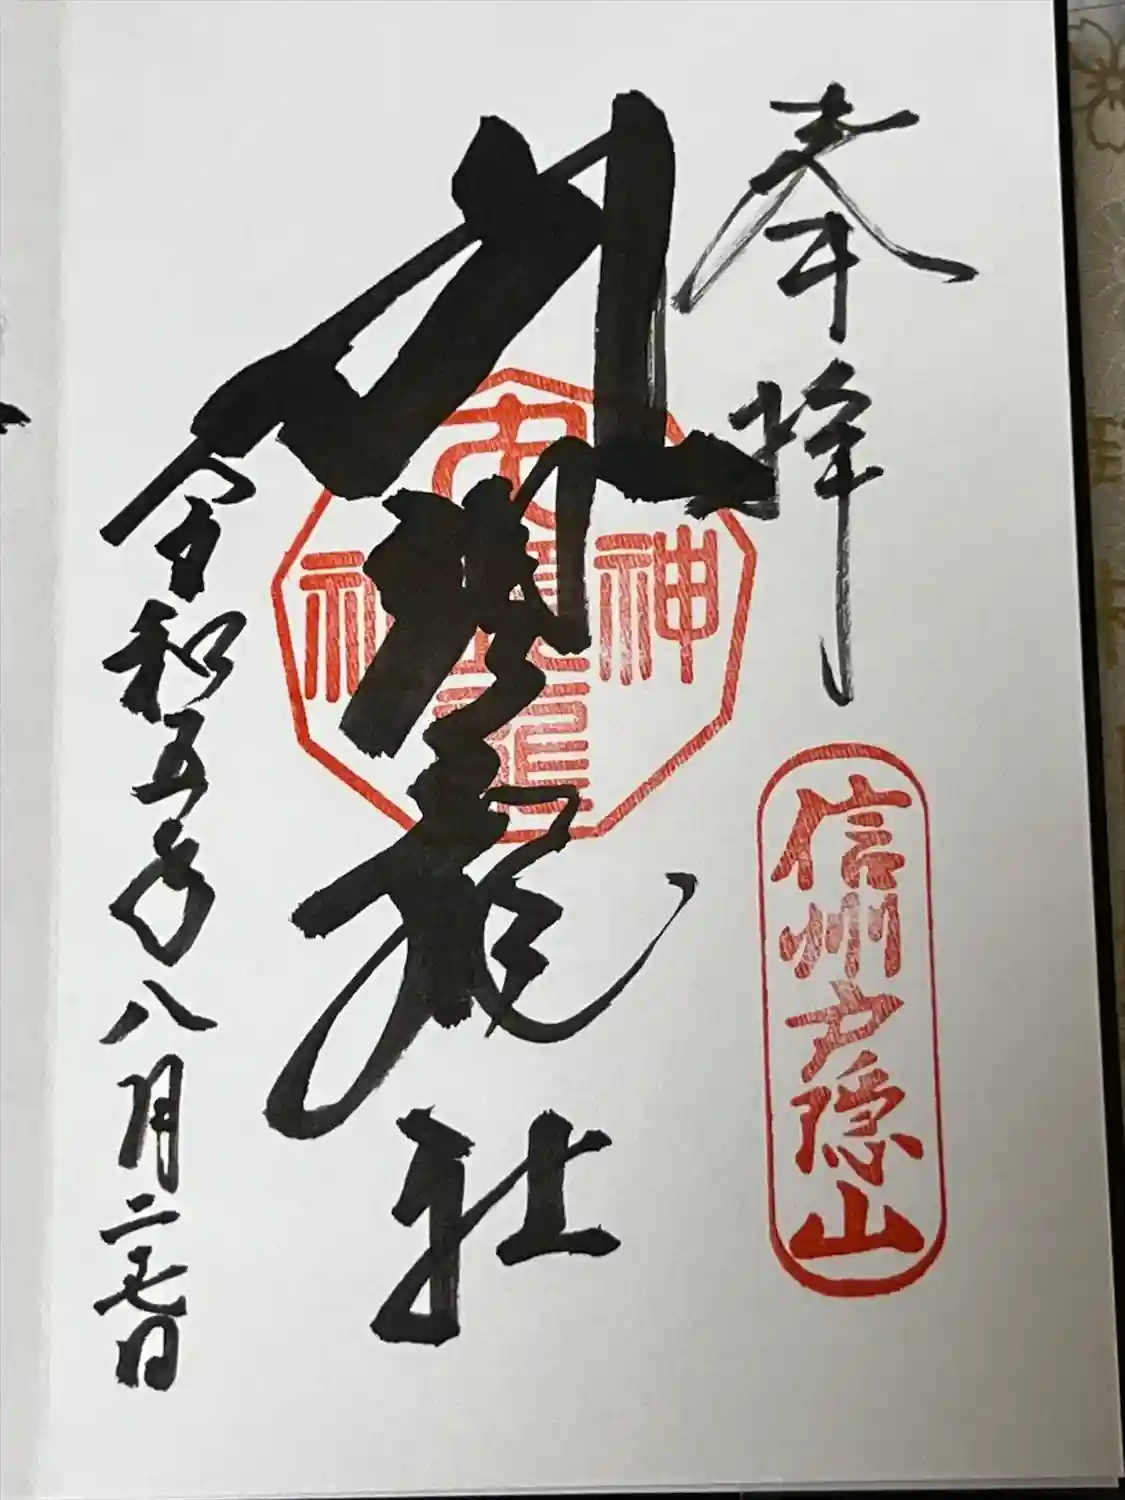 奉拝
信州戸隠山
九頭龍社
九頭龍
神
社
令和五年八月二十七日